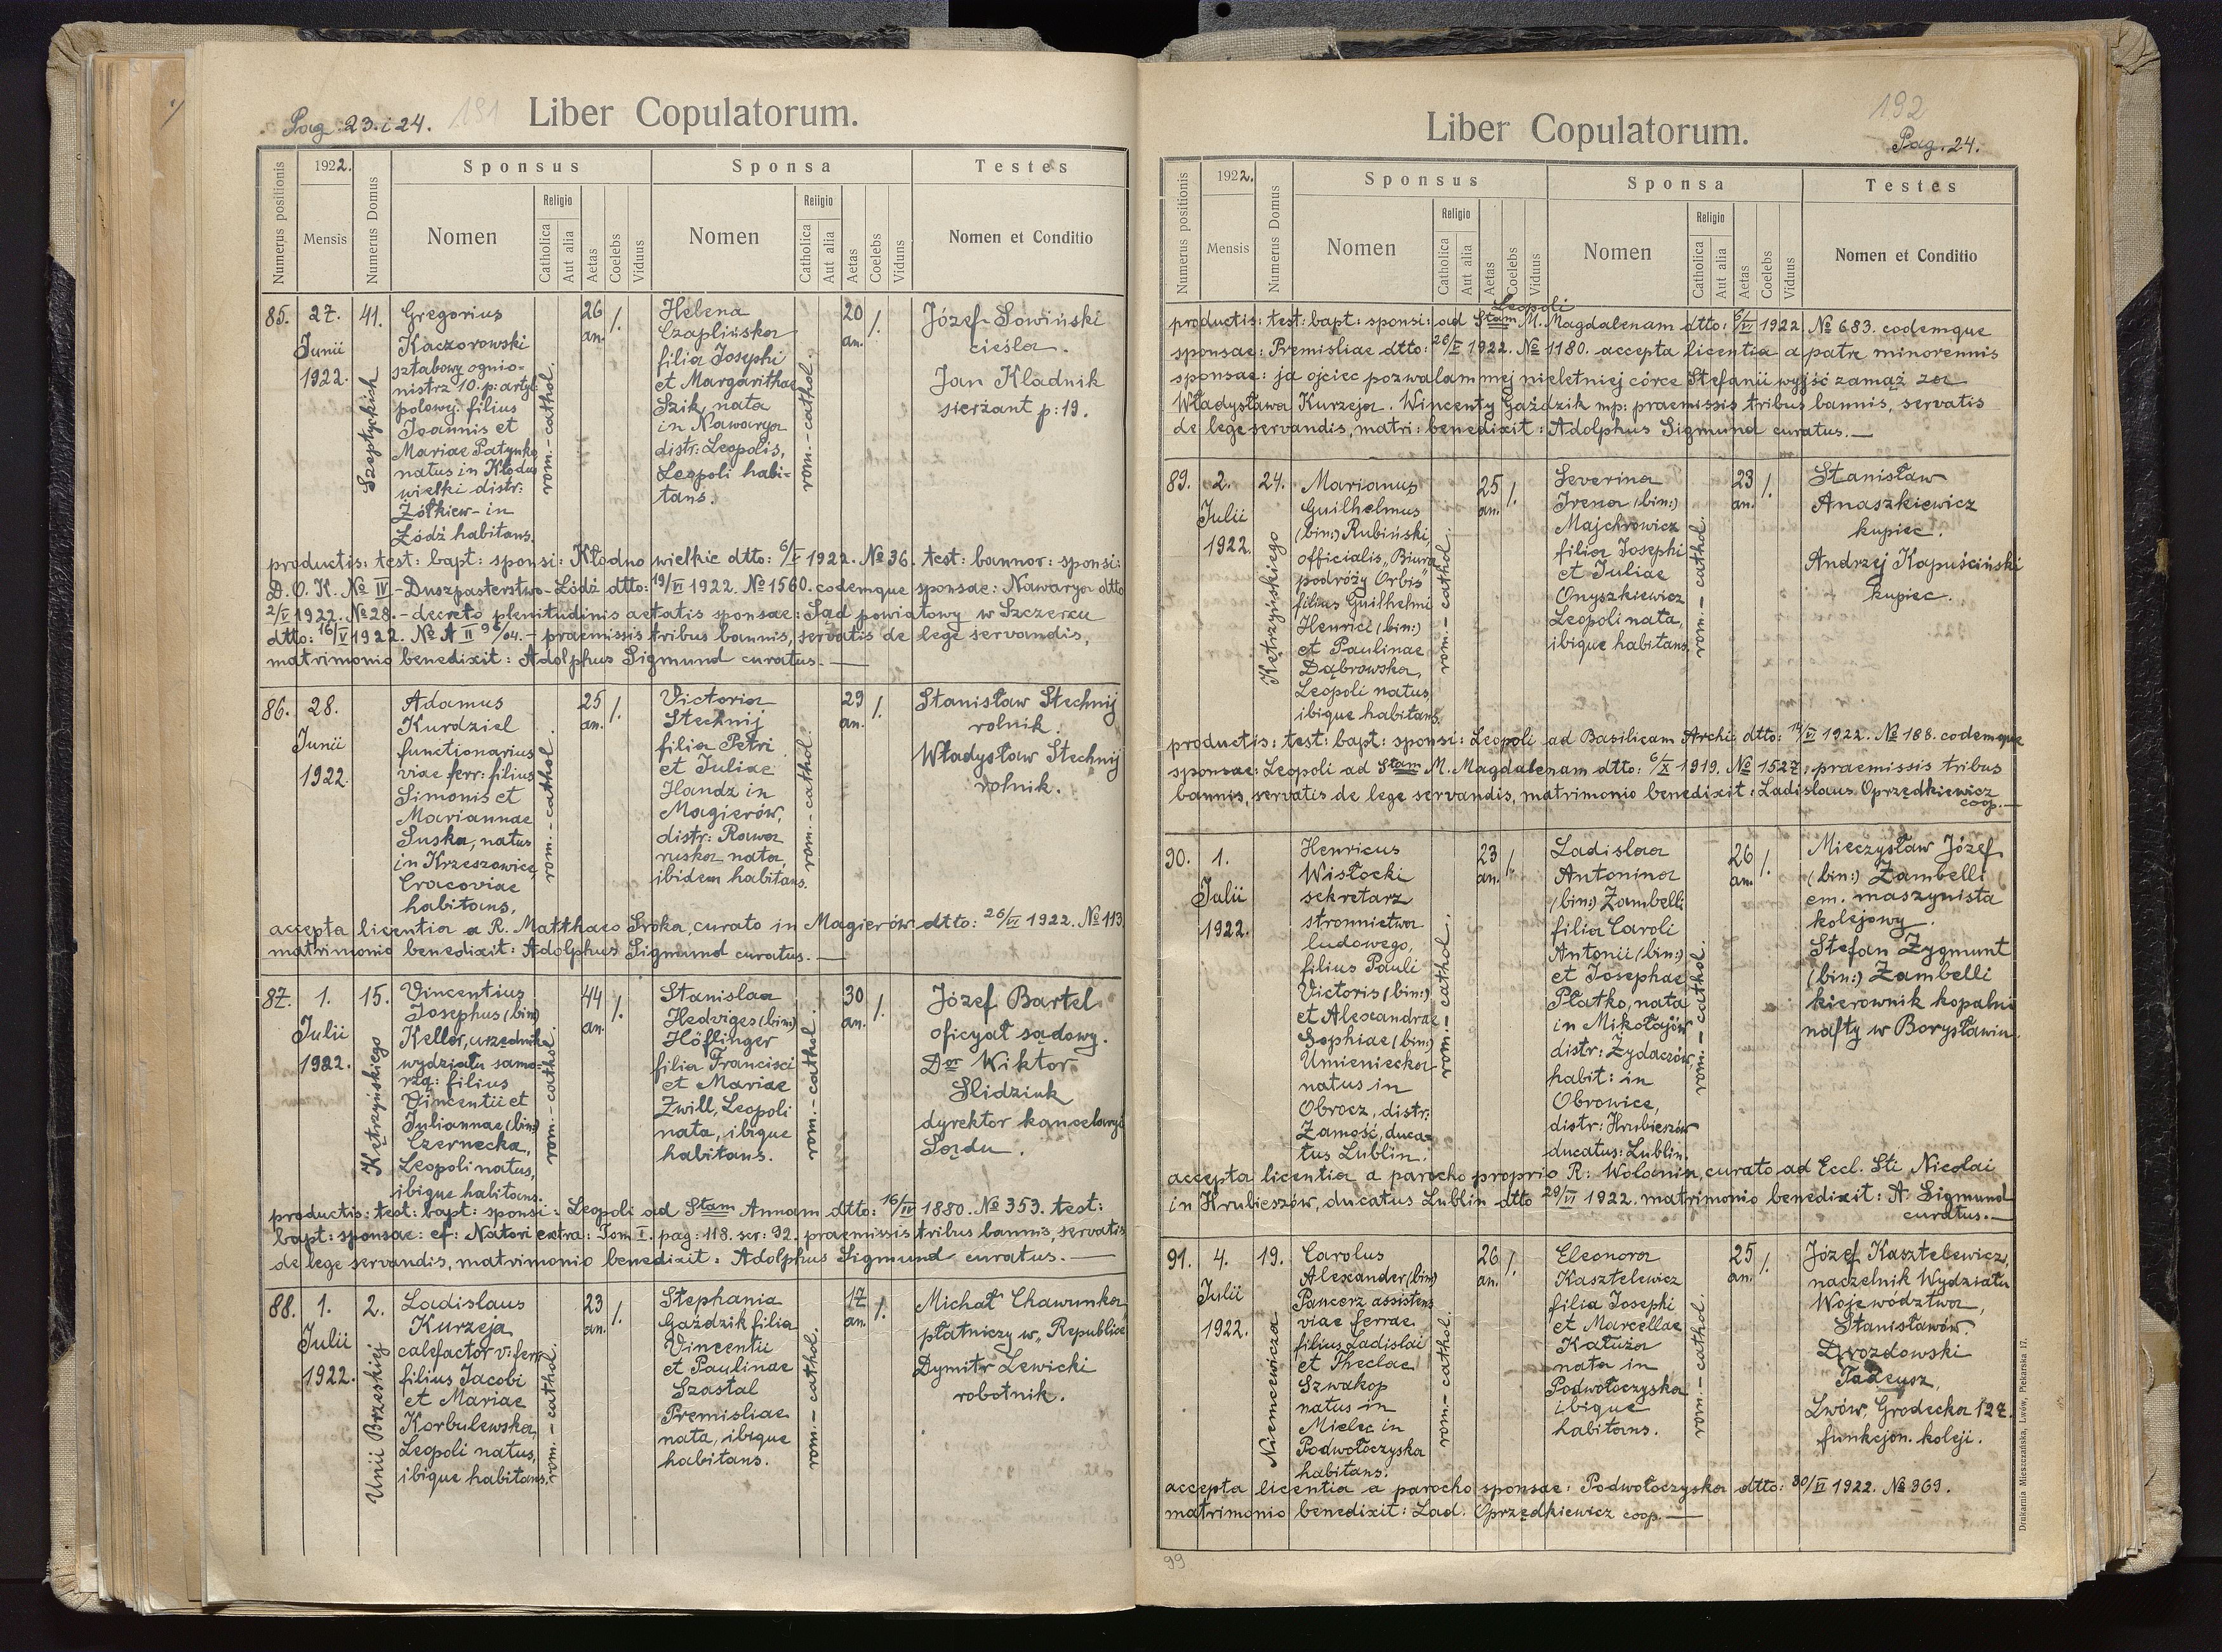 Pag. 23. i 24.
191
Liber Copulatorum.
Numerus positionis
1922.
Mensis
Numerus Domus
Sponsus
Nomen
Religio
Catholica
Aut alia
Aetas
Coelebs
Viduus
Sponsa
Nomen
Religio
Catholica
Aut alia
Aetas
Coelebs
Viduus
Testes
Nomen et Conditio
85.
27.
Junii
1922.
41.
Szeptyckich
Gregorius
Kaczorowski
sztabowy ognio-
mistrz 10. p: artyl:
polowy. filius
Joannis et
Mariae Patynko
natus in Kłodno
wielki distr:
Żółkiew- in
Łódź habitans.
rom.-cathol.
26
an.
/.
Helena
Czaplińska
filia Josephi
et Margarithae
Szik, nata
in Nawarya
distr: Leopolis,
Leopoli habi-
tans.
rom.-cathol.
20
an.
/.
Józef Sowiński
cieśla.
Jan Kladnik
sierżant p: 19.
productis: test: bapt: sponsi: Kłodno wielkie dtto: 6/V 1922. № 36. test: bannor: sponsi:
D. O. K. № IV - Duszpasterstwo - Łódź dtto: 19/VI 1922. № 1560. eodemque sponsae: Nawarya dtto
2/V 1922. № 28. - decreto plenitudinis aetatis sponsae: Sąd powiatowy w Szczercu
dtto: 16/V 1922. № A II 96/04. - praemissis tribus bannis, servatis de lege servandis,
matrimonio benedixit: Adolphus Sigmund curatus. —
86.
28.
Junii
1922.
Adamus
Kurdziel
functionarius
viae ferr: filius
Simonis et
Mariannae
Suska, natus
in Krzeszowice,
Cracoviae
habitans,
rom.-cathol.
25
an.
/.
Victoria
Stechnij
filia Petri
et Juliae
Handz in
Magierów,
distr: Rawa
ruska nata,
ibidem habitans.
rom.-cathol.
29
an.
/.
Stanisław Stechnij
rolnik.
Władysław Stechnij
rolnik.
accepta licentia a R. Matthaeo Sroka, curato in Magierów dtto: 26/VI 1922. № 113.
matrimonio benedixit: Adolphus Sigmund curatus. —
87.
1.
Julii
1922.
15.
Kętrzyńskiego
Vincentius
Josephus (bin:)
Keller, urzędnik
wydziału samo-
rzą: filius
Vincentii et
Juliannae (bin:)
Czernecka,
Leopoli natus,
ibique habitans.
rom.-cathol.
44
an.
/.
Stanislaa
Hedviges (bin:)
Höflinger
filia Francisci
et Mariae
Zwill, Leopoli
nata, ibique
habitans.
rom.-cathol.
30
an.
/.
Józef Bartel
oficyał sądowy.
Dor Wiktor
Slidziuk
dyrektor kancelaryi
Sądu.
productis: test: bapt: sponsi: Leopoli ad Stam Annam dtto: 16/IV 1880. № 353. test:
bapt: sponsae: ef: Natori extra: Tom I. pag: 118. ser: 92. praemissis tribus bannis, servatis
de lege servandis, matrimonio benedixit: Adolphus Sigmund curatus. —
88.
1.
Julii
1922.
2.
Unii Brzeskiej
Ladislaus
Kurzeja
calefactor v: ferr:
filius Jacobi
et Mariae
Korbulewska,
Leopoli natus,
ibique habitans.
rom.-cathol.
23
an.
/.
Stephania
Gaździk filia
Vincentii
et Paulinae
Szastal
Premisliae
nata, ibique
habitans.
rom.-cathol.
17
an.
/.
Michał Chawunka
płatniczy w „Republice"
Dymitr Lewicki
robotnik.
192
Liber Copulatorum.
Pag. 24.
Numerus positionis
1922.
Mensis
Numerus Domus
Sponsus
Nomen
Religio
Catholica
Aut alia
Aetas
Coelebs
Viduus
Sponsa
Nomen
Religio
Catholica
Aut alia
Aetas
Coelebs
Viduus
Testes
Nomen et Conditio
Leopoli
productis: test: bapt: sponsi: ad Stam M. Magdalenam dtto: 6/VI 1922 № 683. eodemque
sponsae: Premisliae dtto: 26/V 1922. № 1180. accepta licentia a patre minorennis
sponsae: ja ojciec pozwalam mej nieletniej córce Stefanii wyjść zamąż za
Władysława Kurzeja. Wincenty Gaździk mp: praemissis tribus bannis, servatis
de lege servandis, matri: benedixit: Adolphus Sigmund curatus. —
89.
2.
Julii
1922.
24.
Kętrzyńskiego
Marianus
Guilhelmus
(bin:) Rubiński,
officialis „Biura
podróży Orbis"
filius Guilhelmi
Henrici (bin:)
et Paulinae
Dąbrowska,
Leopoli natus,
ibique habitans.
rom.-cathol.
25
an.
/.
Severina
Irena (bin:)
Majchrowicz
filia Josephi
et Juliae
Onyszkiewicz
Leopoli nata,
ibique habitans.
rom.-cathol.
23
an.
/.
Stanisław
Anaszkiewicz
kupiec.
Andrzej Kapuściński
kupiec.
productis: test: bapt: sponsi: Leopoli ad Basilicam Archi: dtto: 14/VI 1922. № 188. eodemque
sponsae: Leopoli ad Stam M. Magdalenam dtto: 6/X 1919. № 1527: praemissis tribus
bannis, servatis de lege servandis, matrimonio benedixit: Ladislaus Oprzędkiewicz
coop. —
90.
1.
Julii
1922.
Henricus
Wisłocki
sekretarz
stronnictwa
ludowego,
filius Pauli
Victoris (bin:)
et Alexandrae
Sophiae (bin:)
Umieniecka
natus in
Obrocz, distr:
Zamość, duca-
tus Lublin.
rom.-cathol.
23
an.
/.
Ladislaa
Antonina
(bin:) Zambelli
filia Caroli
Antonii (bin:)
et Josephae
Płatko, nata
in Mikołajów
distr: Żydaczów,
habit: in
Obrowice,
distr: Hrubieszów
ducatus: Lublin.
rom.-cathol.
26
an.
/.
Mieczysław Józef
(bin:) Zambelli
em. maszynista
kolejowy
Stefan Zygmunt
(bin:) Zambelli
kierownik kopalni
nafty w Borysławiu.
accepta licentia a parocho proprio R: Wolanin, curato ad Eccl. Sti Nicolai
in Hrubieszów, ducatus Lublin dtto 29/VI 1922. matrimonio benedixit: A. Sigmund
curatus. —
91.
4.
Julii
1922.
19.
Niemcewicza
Carolus
Alexander (bin:)
Pancerz assistens
viae ferrae
filius Ladislai
et Theclae
Szwakop
natus in
Mielec in
Podwołoczyska
habitans.
rom.-cathol.
26
an.
/.
Eleonora
Kasztelewicz
filia Josephi
et Marcellae
Kałuża
nata in
Podwołoczyska
ibique
habitans.
rom.-cathol.
25
an.
/.
Józef Kasztelewicz,
naczelnik Wydziału
Województwa,
Stanisławów.
Drozdowski
Tadeusz,
Lwów, Grodecka 127.
funkcjon. koleji.
accepta licentia a parocho sponsae: Podwołoczyska dtto: 30/VI 1922. № 369.
matrimonio benedixit: Lad. Oprzędkiewicz coop. —
99
Drukarnia Mieszczańska, Lwów, Piekarska 17.